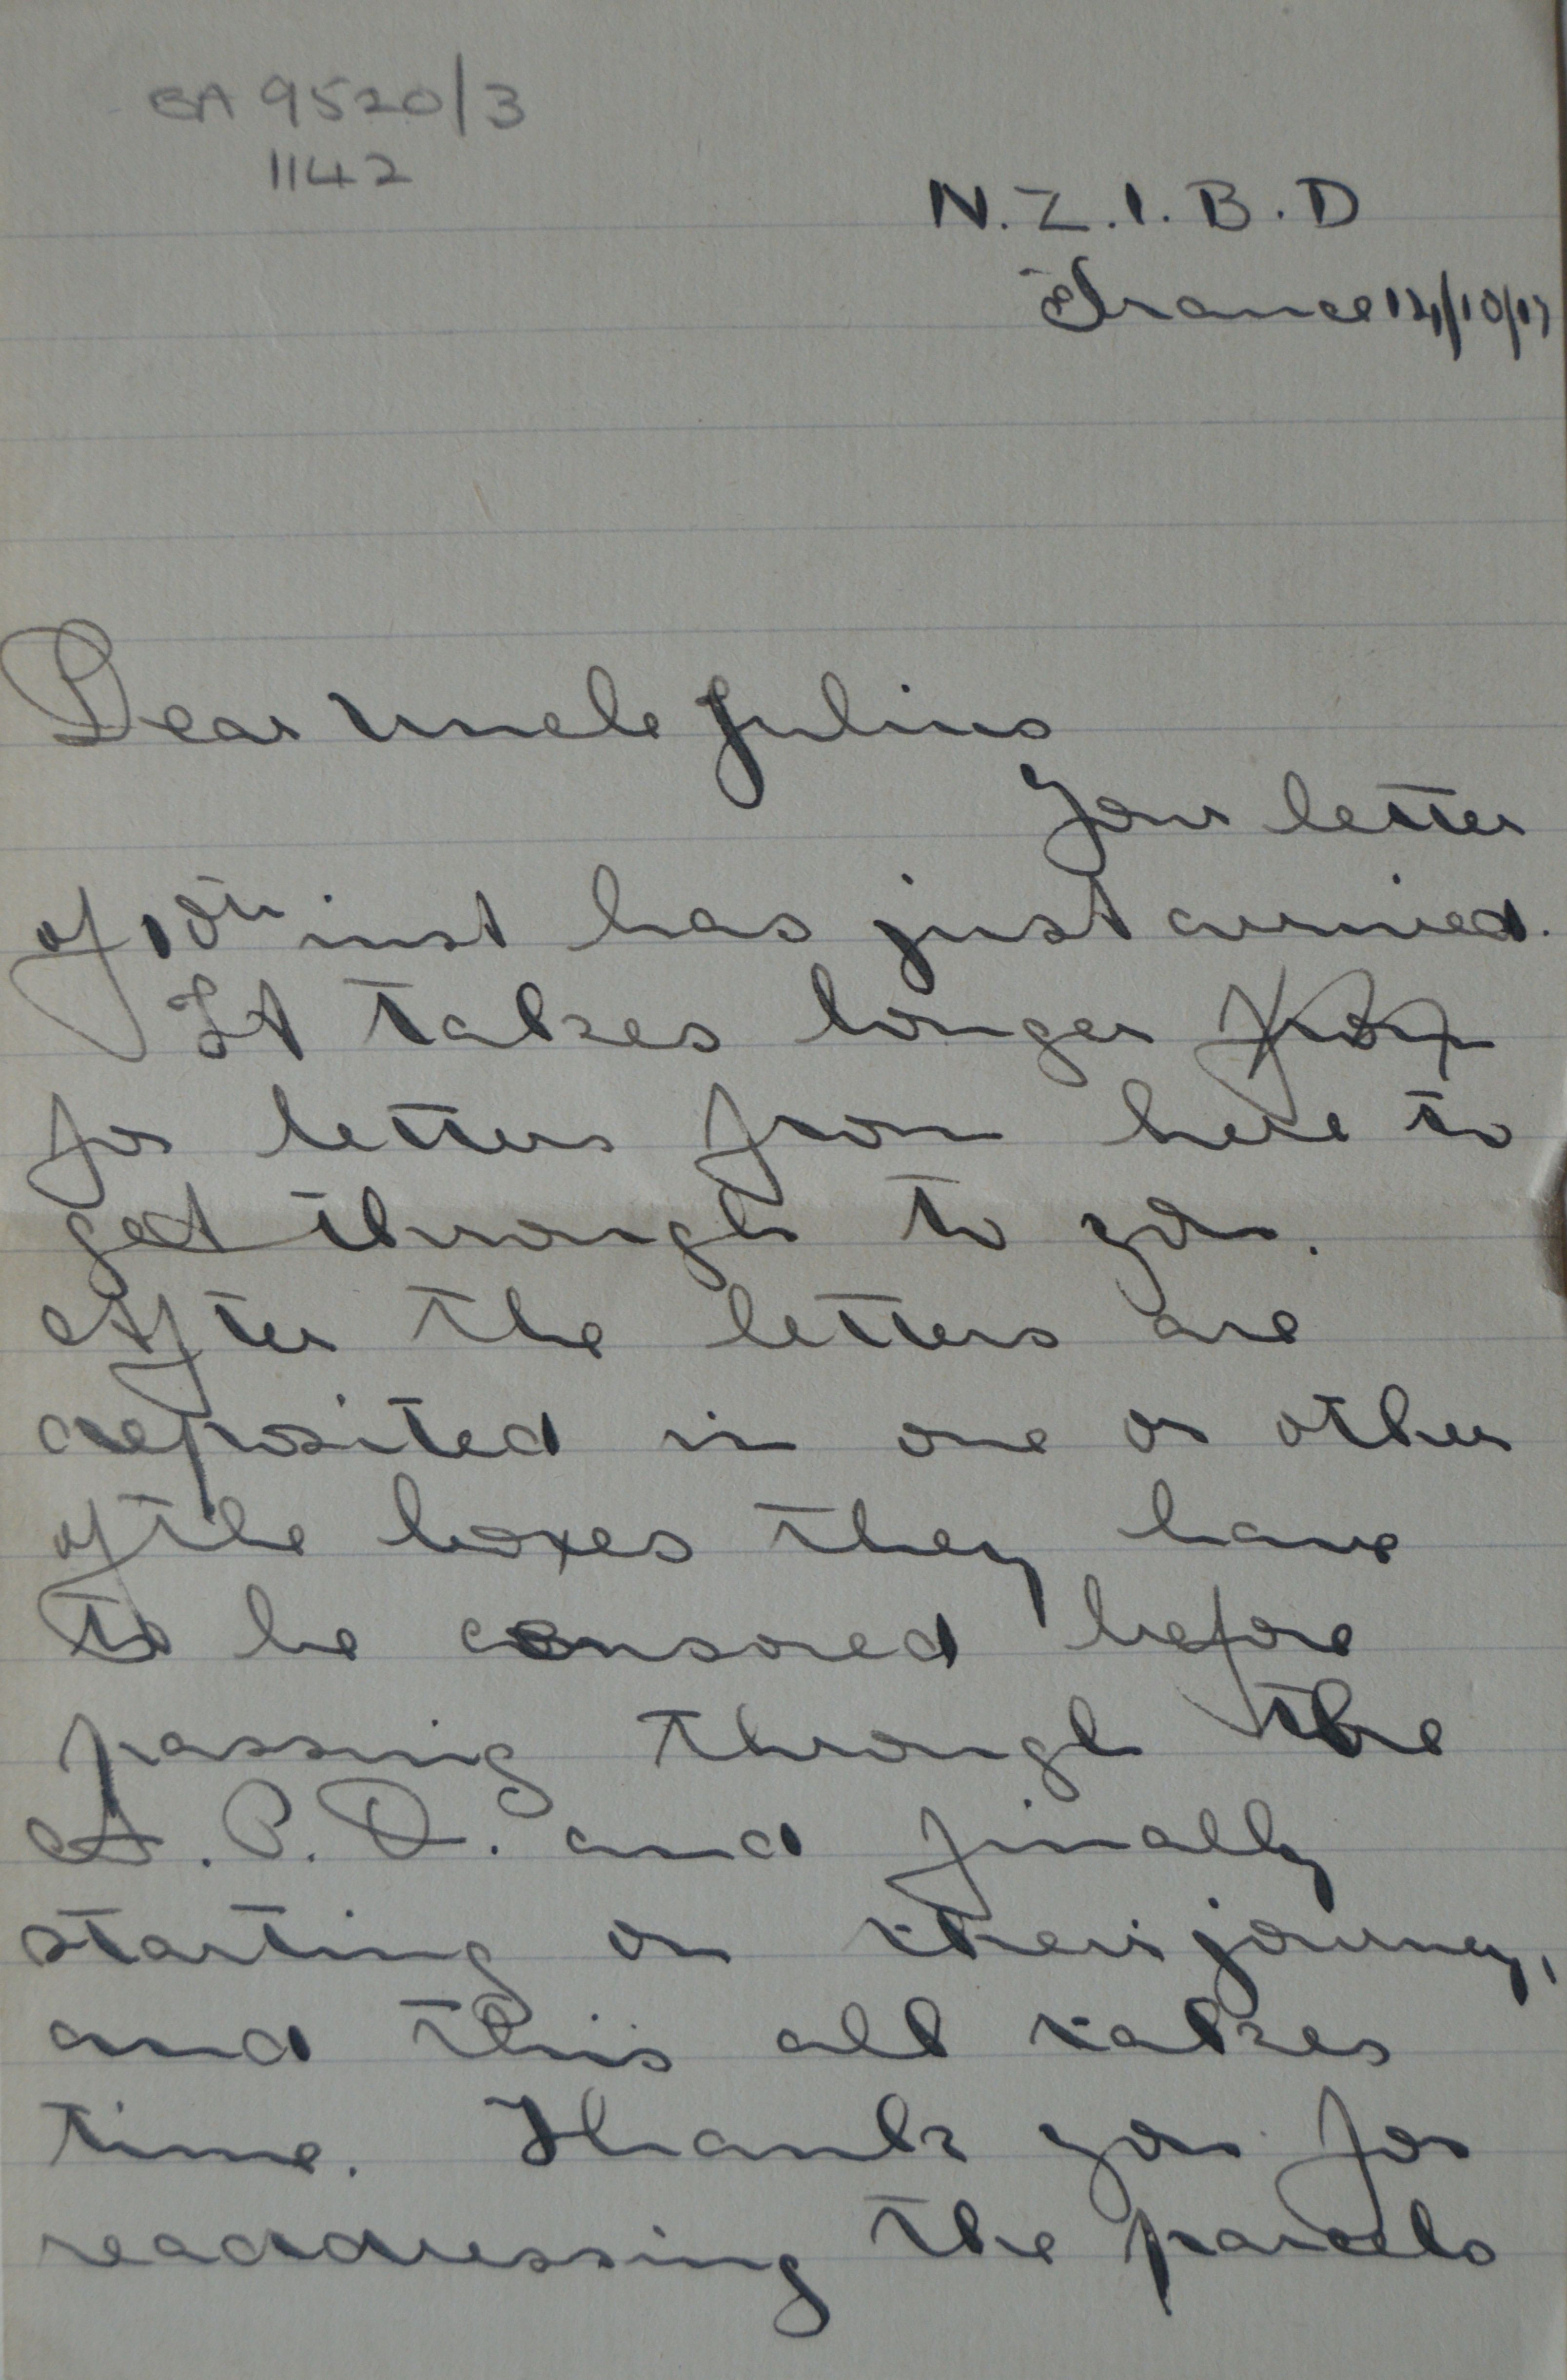 BA 9520/3
1142
N.Z.I.B.D
France 14/10/17
Dear Uncle Julius
Your letter
of 10th inst has just arrived.
It takes longer from
for letters from here to
get through to you.
After the letters are
deposited in one or other
of the boxes they have
to be censored before
passing through the
A.P.O. and finally
starting on their journey,
and this all takes
time. Thank you for
readdressing the parcels